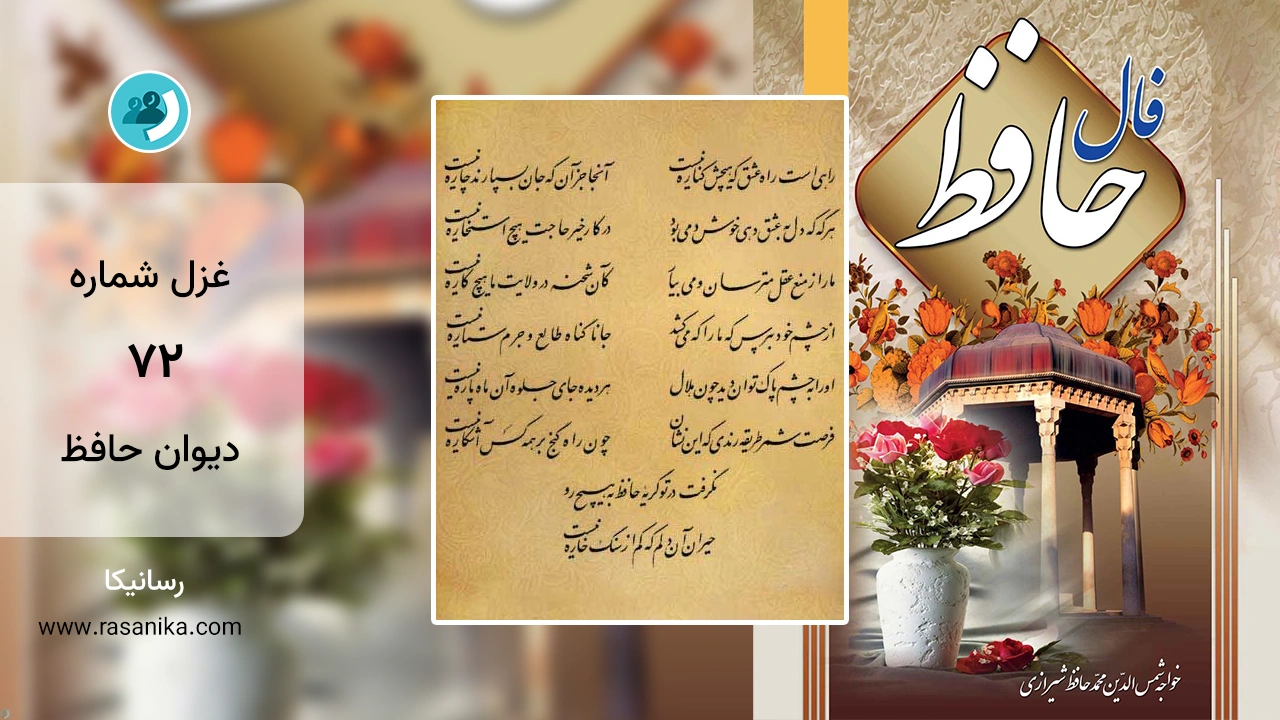 فال
حافظ
غزل شماره
۷۲
دیوان حافظ
رسانیکا
www.rasanika.com
راهی است راه عشق که هیچش کناره نیست
آنجا جز آن که جان بسپارند چاره نیست
هرگه که دل به عشق دهی خوش دمی بود
در کار خیر حاجت هیچ استخاره نیست
ما را ز منع عقل مترسان و می بیار
کان شحنه در ولایت ما هیچ کاره نیست
از چشم خود بپرس که ما را که می‌کشد
جانا گناه طالع و جرم ستاره نیست
او را به چشم پاک توان دید چون هلال
هر دیده جای جلوه آن ماه پاره نیست
فرصت شمر طریقه رندی که این نشان
چون راه گنج بر همه کس آشکاره نیست
نگرفت در تو گریه حافظ به هیچ رو
حیران آن دلم که کم از سنگ خاره نیست
خواجه شمس الدین محمد حافظ شیرازی